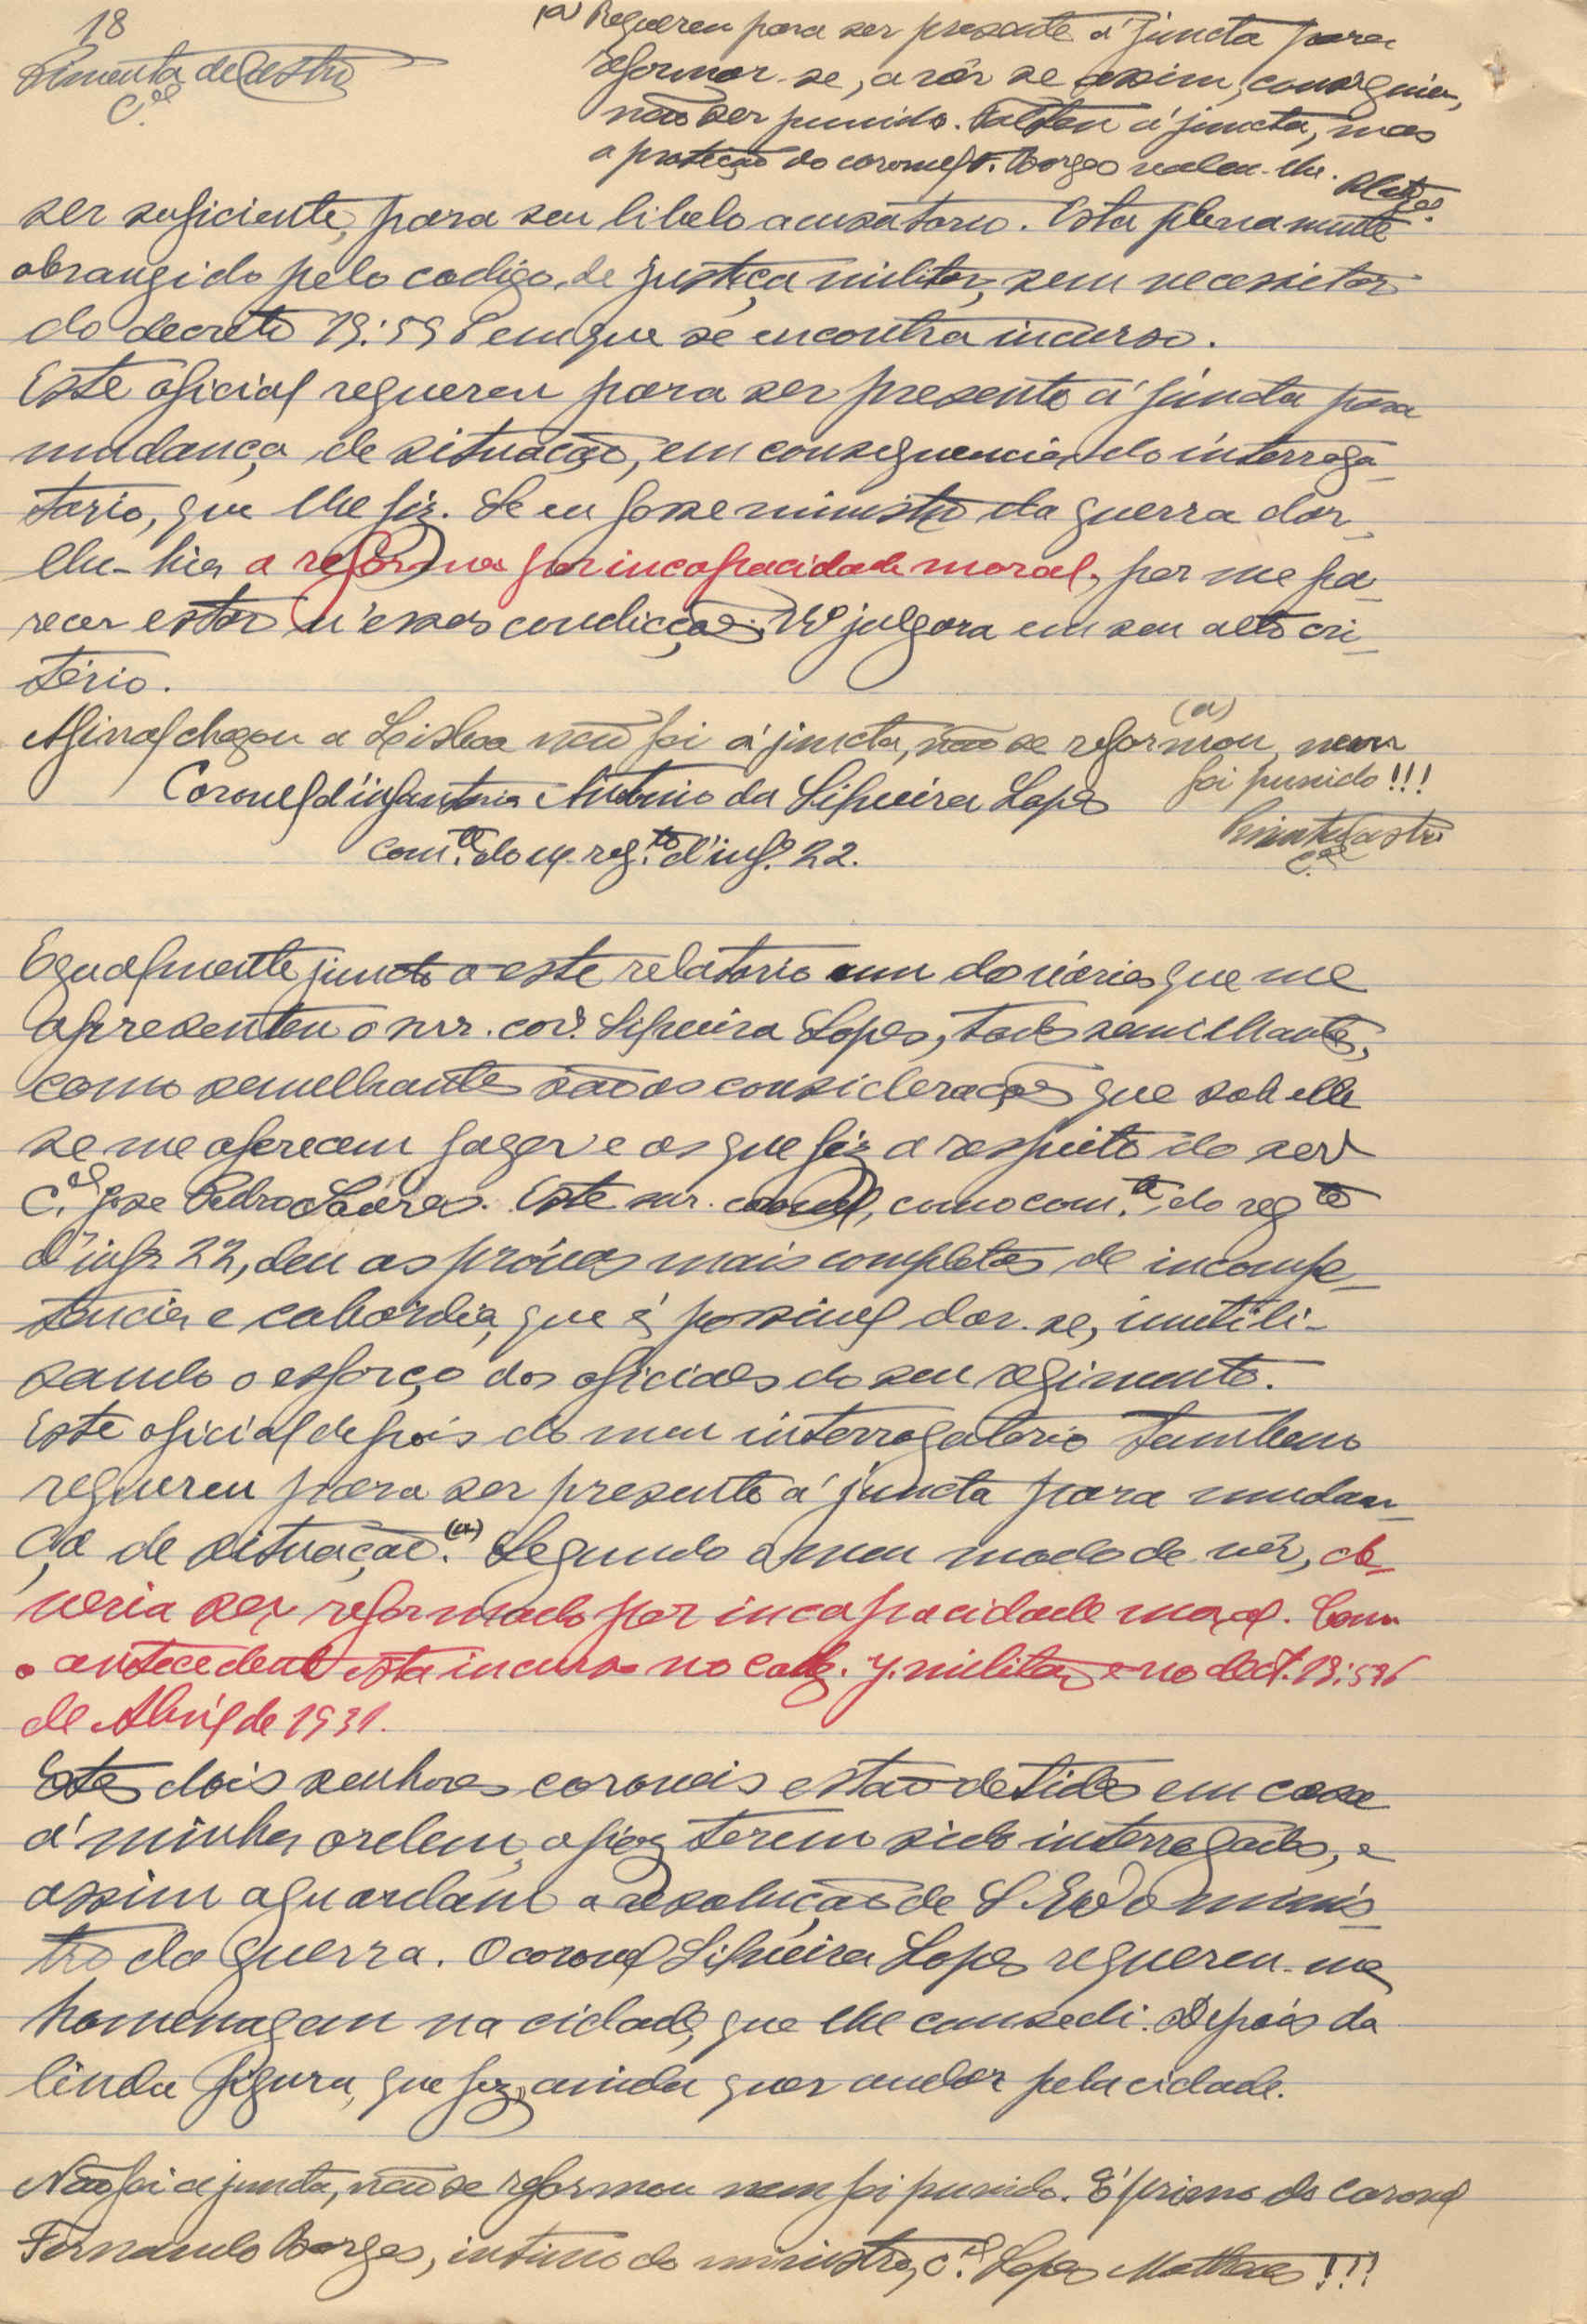 18
Pimenta de Castro
C.el
(a) Requereu para ser presente á juncta para
reformar-se, a vêr se assim, conseguia,
não ser punido. Faltou á juncta, mas
a proteção do coronel F. Borges valeu-lhe.
ser suficiente, para seu libelo acusatorio. Esta plenamente
abrangido pelo codigo, de justiça militar, sem necessitar
do decreto 19:596 em que se encontra incurso.
Este oficial requereu para ser presente á juncta para
mudança de situação, em consequencia do interroga-
torio, que lhe fiz. Se eu fosse ministro da guerra dar-
lhe-hia a reforma por incapacidade moral, por me pa-
recer estar n'essas condicções. V.Ex.ª julgara em seu alto cri-
tério.
Afinal chegou a Lisboa não foi á juncta, não se reformou (a), nem
foi punido!!!
Coronel d'infantaria Antonio da Silveira Lopes
com.te do ex. reg.to d'inf.ª 22.
Pimenta Castro
C.el
Egualmente juncto a este relatorio um dos vários que me
apresentou o snr. cor.el Silveira Lopes, todos semilhantes,
como semelhantes são as considerações que sob elle
se me oferecem fazer e as que fiz a respeito do snr.
C.el José Pedro Soares. Este snr. coronel, como com.te do reg.to
d'inf.ª 22, deu as próvas mais completas de incompe-
tencia e cobardia, que é possivel dar-se, inutili-
sando o esforço dos oficiaes do seu regimento.
Este oficial depois do meu interrogatorio tambem
requereu para ser presente á juncta para mudan-
ça de situação. (a) Segundo o meu modo de vêr, de-
veria ser reformado por incapacidade moral. Como
o antecedente esta incurso no cod. j. militar e no dect. 19:596
de Abril de 1931.
Estes dois senhores coroneis estão detidos em casa
á minha ordem, apoz terem sido interrogados, e
assim aguardam a resolução de S. Ex.ª o minis-
tro da guerra. O coronel Silveira Lopes requereu-me
homenagem na cidade, que lhe consedi. Depois da
linda figura, que fez, ainda quer andar pela cidade.
Não foi á juncta, não se reformou nem foi punido. É primo do coronel
Fernando Borges, intimo do ministro, C.el Lopes Matheus!!!